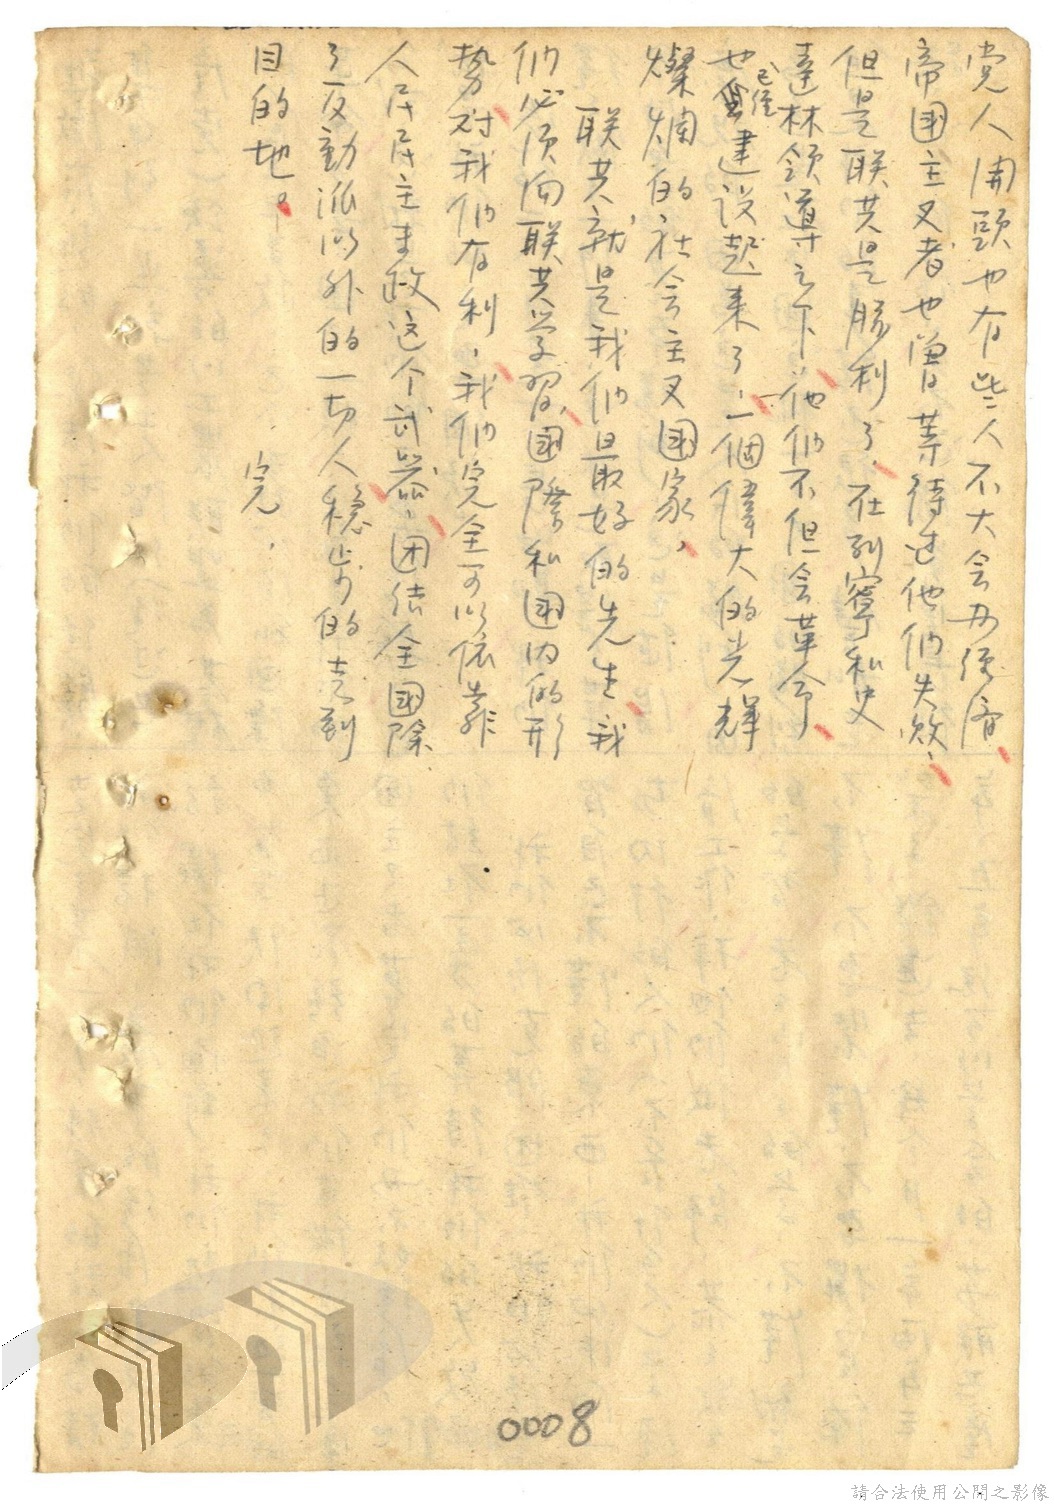 党人開頭也有些人不大会办经濟、
帝国主义者也曾等待过他们失敗、
但是联共是勝利了、在列寧和史
達林領導之下、他们不但会革命、
也已经建设起来了、一個偉大的光輝
燦爛的社会主义國家、
联共就是我们最好的先生、我
们必须向联共学習、國際和國内的形
勢对我们有利、我们完全可以依靠
人民民主専政这个武器、团结全國除
了反動派以外的一切人稳步的走到
目的地。
完、
0008
請合法使用公開之影像